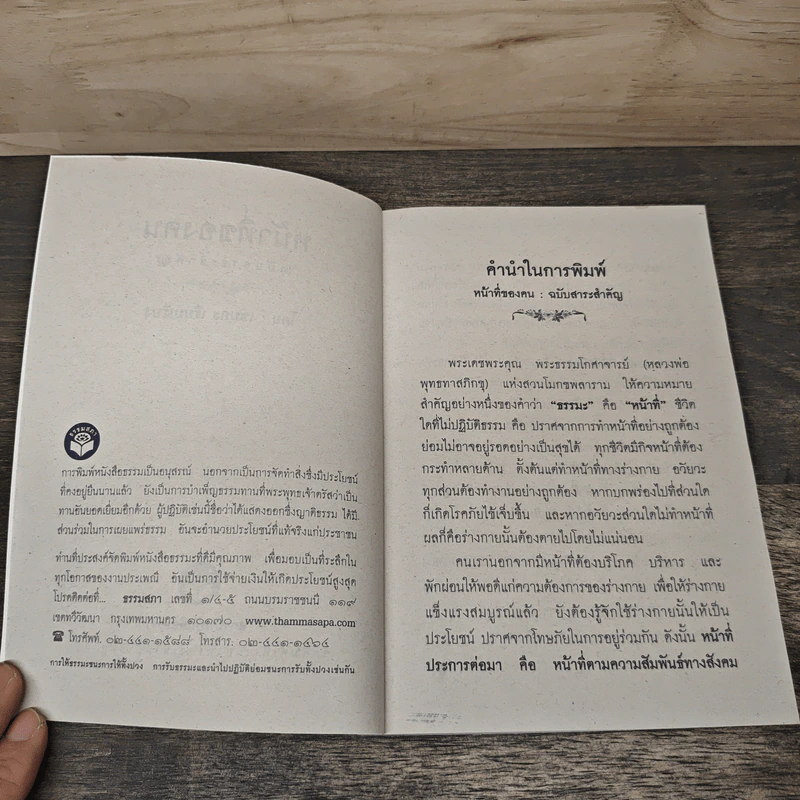 ธรรมสภา
การพิมพ์หนังสือธรรมเป็นอนุสรณ์ นอกจากเป็นการจัดทำสิ่งซึ่งมีประโยชน์
ที่คงอยู่ยืนนานแล้ว ยังเป็นการบำเพ็ญธรรมทานที่พระพุทธเจ้าตรัสว่าเป็น
ทานอันยอดเยี่ยมอีกด้วย ผู้ปฏิบัติเช่นนี้ชื่อว่าได้แสดงออกซึ่งญาติธรรม ได้มี
ส่วนร่วมในการเผยแพร่ธรรม อันจะอำนวยประโยชน์ที่แท้จริงแก่ประชาชน
ท่านที่ประสงค์จัดพิมพ์หนังสือธรรมะที่ดีมีคุณภาพ เพื่อมอบเป็นที่ระลึกใน
ทุกโอกาสของงานประเพณี อันเป็นการใช้จ่ายเงินให้เกิดประโยชน์สูงสุด
โปรดติดต่อที่... ธรรมสภา เลขที่ ๑/๔-๕ ถนนบรมราชชนนี ๑๑๙
เขตทวีวัฒนา กรุงเทพมหานคร ๑๐๑๗๐ www.thammasapa.com
☎ โทรศัพท์. ๐๒-๔๔๑-๑๕๘๘ โทรสาร. ๐๒-๔๔๑-๑๔๖๔
การให้ธรรมะชนะการให้ทั้งปวง การรับธรรมะและนำไปปฏิบัติย่อมชนะการรับทั้งปวงเช่นกัน
คำนำในการพิมพ์
หน้าที่ของคน : ฉบับสาระสำคัญ
พระเดชพระคุณ พระธรรมโกศาจารย์ (หลวงพ่อ
พุทธทาสภิกขุ) แห่งสวนโมกขพลาราม ให้ความหมาย
สำคัญอย่างหนึ่งของคำว่า “ธรรมะ” คือ “หน้าที่” ชีวิต
ใดที่ไม่ปฏิบัติธรรม คือ ปราศจากการทำหน้าที่อย่างถูกต้อง
ย่อมไม่อาจอยู่รอดอย่างเป็นสุขได้ ทุกชีวิตมีกิจหน้าที่ต้อง
กระทำหลายด้าน ตั้งต้นแต่ทำหน้าที่ทางร่างกาย อวัยวะ
ทุกส่วนต้องทำงานอย่างถูกต้อง หากบกพร่องไปที่ส่วนใด
ก็เกิดโรคภัยไข้เจ็บขึ้น และหากอวัยวะส่วนใดไม่ทำหน้าที่
ผลก็คือร่างกายนั้นต้องตายไปโดยไม่แน่นอน
คนเรานอกจากมีหน้าที่ต้องบริโภค บริหาร และ
พักผ่อนให้พอดีแก่ความต้องการของร่างกาย เพื่อให้ร่างกาย
แข็งแรงสมบูรณ์แล้ว ยังต้องรู้จักใช้ร่างกายนั้นให้เป็น
ประโยชน์ ปราศจากโทษภัยในการอยู่ร่วมกัน ดังนั้น หน้าที่
ประการต่อมา คือ หน้าที่ตามความสัมพันธ์ทางสังคม